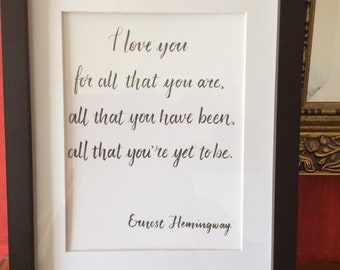 I love you
for all that you are,
all that you have been,
all that you're yet to be.
Ernest Hemingway